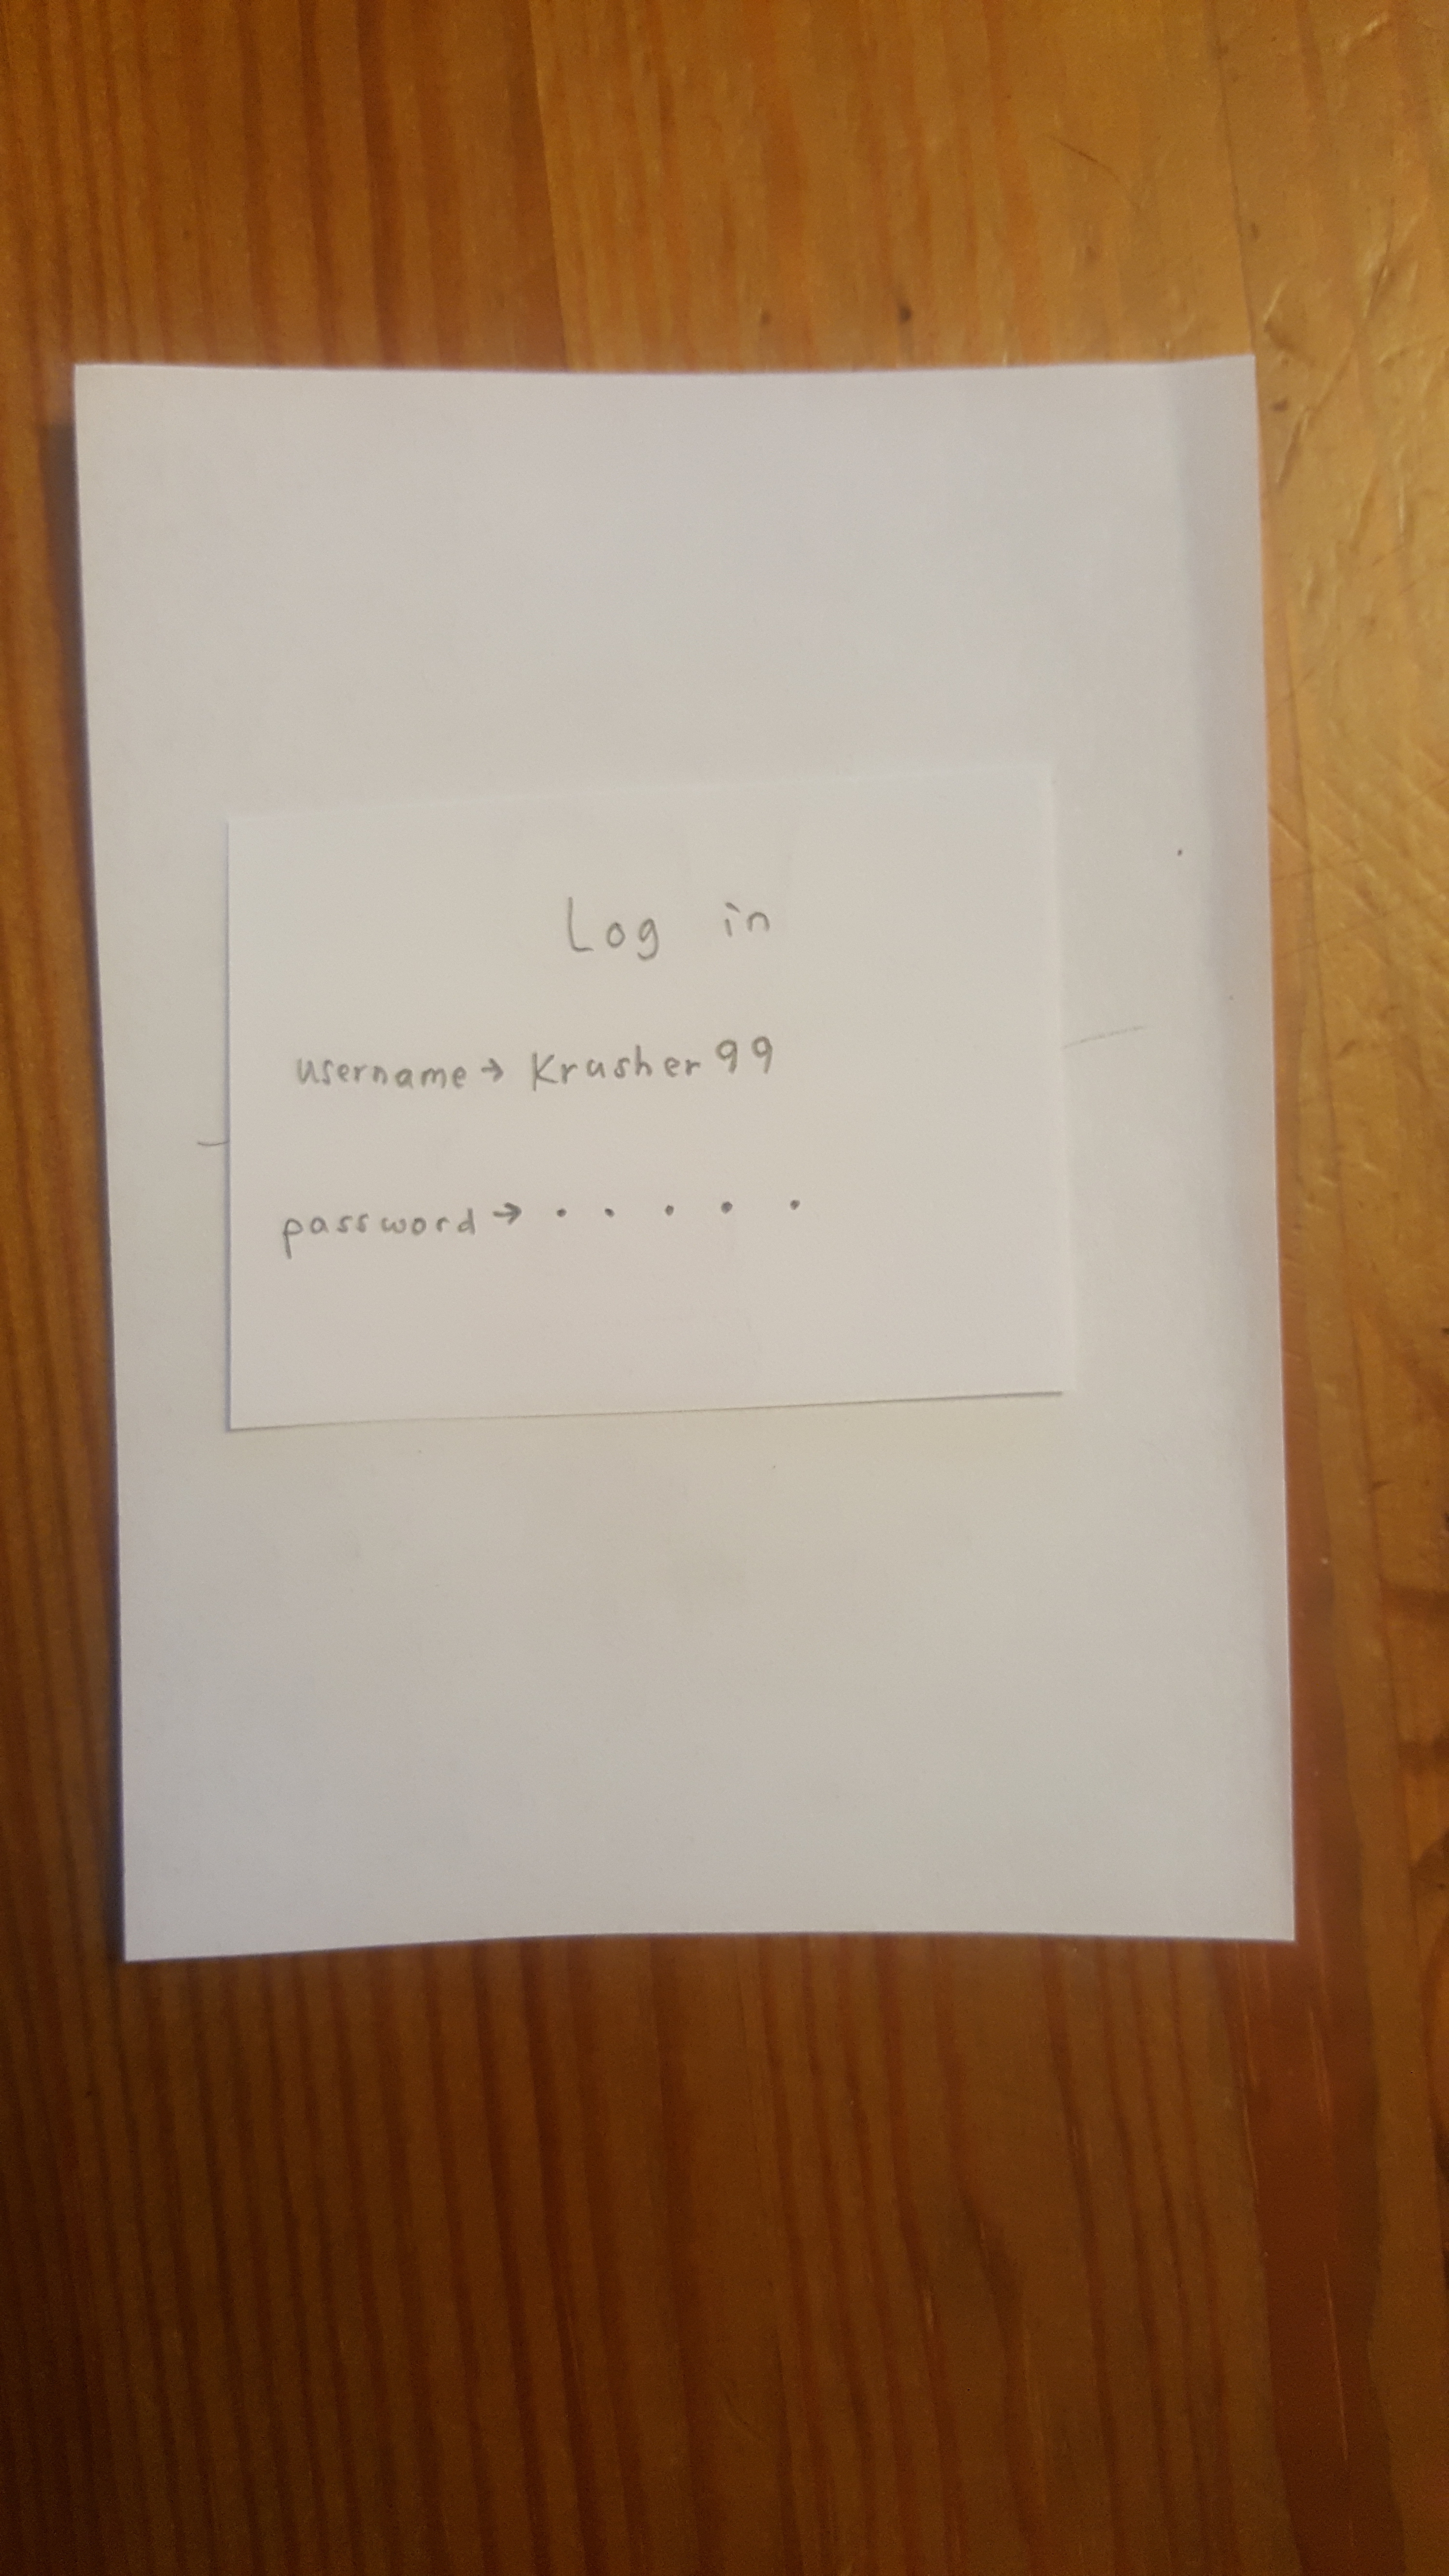 Log in
username → Krusher99
password → • • • • •